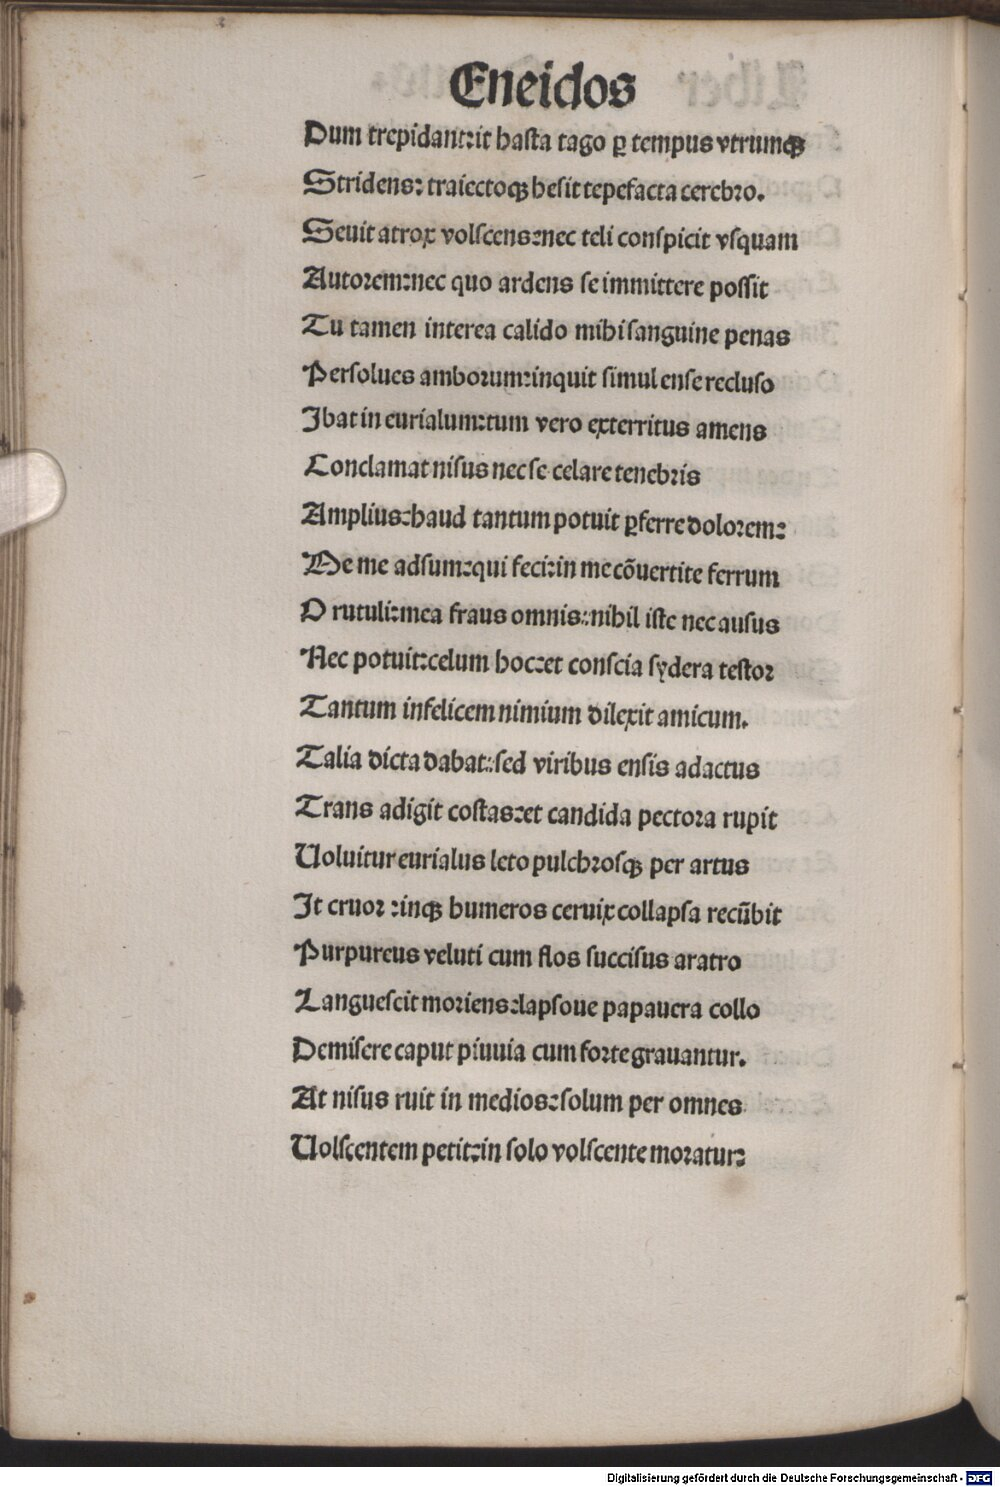 Eneidos
Dum trepidant:it hasta tago ꝑ tempus vtrumqꝫ
Stridens: traiectoqꝫ hesit tepefacta cerebro.
Seuit atrox volscens:nec teli conspicit vsquam
Autorem:nec quo ardens se immittere possit
Tu tamen interea calido mihi sanguine penas
Persolues amborum:inquit simul ense recluso
Ibat in eurialum:tum vero exterritus amens
Conclamat nisus nec se celare tenebris
Amplius:haud tantum potuit ꝑferre dolorem:
Me me adsum:qui feci:in me cõuertite ferrum
O rutuli:mea fraus omnis:nihil iste nec ausus
Nec potuit:celum hoc:et conscia sydera testor
Tantum infelicem nimium dilexit amicum.
Talia dicta dabat:sed viribus ensis adactus
Trans adigit costas:et candida pectora rupit
Uoluitur eurialus leto pulchrosqꝫ per artus
It cruor :inqꝫ humeros ceruix collapsa recũbit
Purpureus veluti cum flos succisus aratro
Languescit moriens:lapsoue papauera collo
Demisere caput pluuia cum forte grauantur.
At nisus ruit in medios:solum per omnes
Uolscentem petit:in solo volscente moratur:
Digitalisierung gefördert durch die Deutsche Forschungsgemeinschaft - DFG